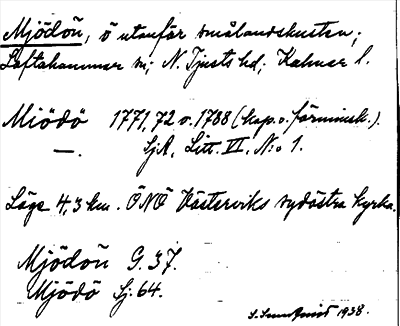 Mjödön, ö utanför smålandskusten;
Loftahammar sn; N. Tjusts hd; Kalmar l.
Miödö 1771, 72 o. 1788 (kap. o. förminsk.).
—. SjR, Litt. VI, N:o 1.
Läge 4,3 km. ÖNÖ Västerviks sydöstra kyrka.
Mjödön G. 37.
Mjödö Sj. 64.
1938.